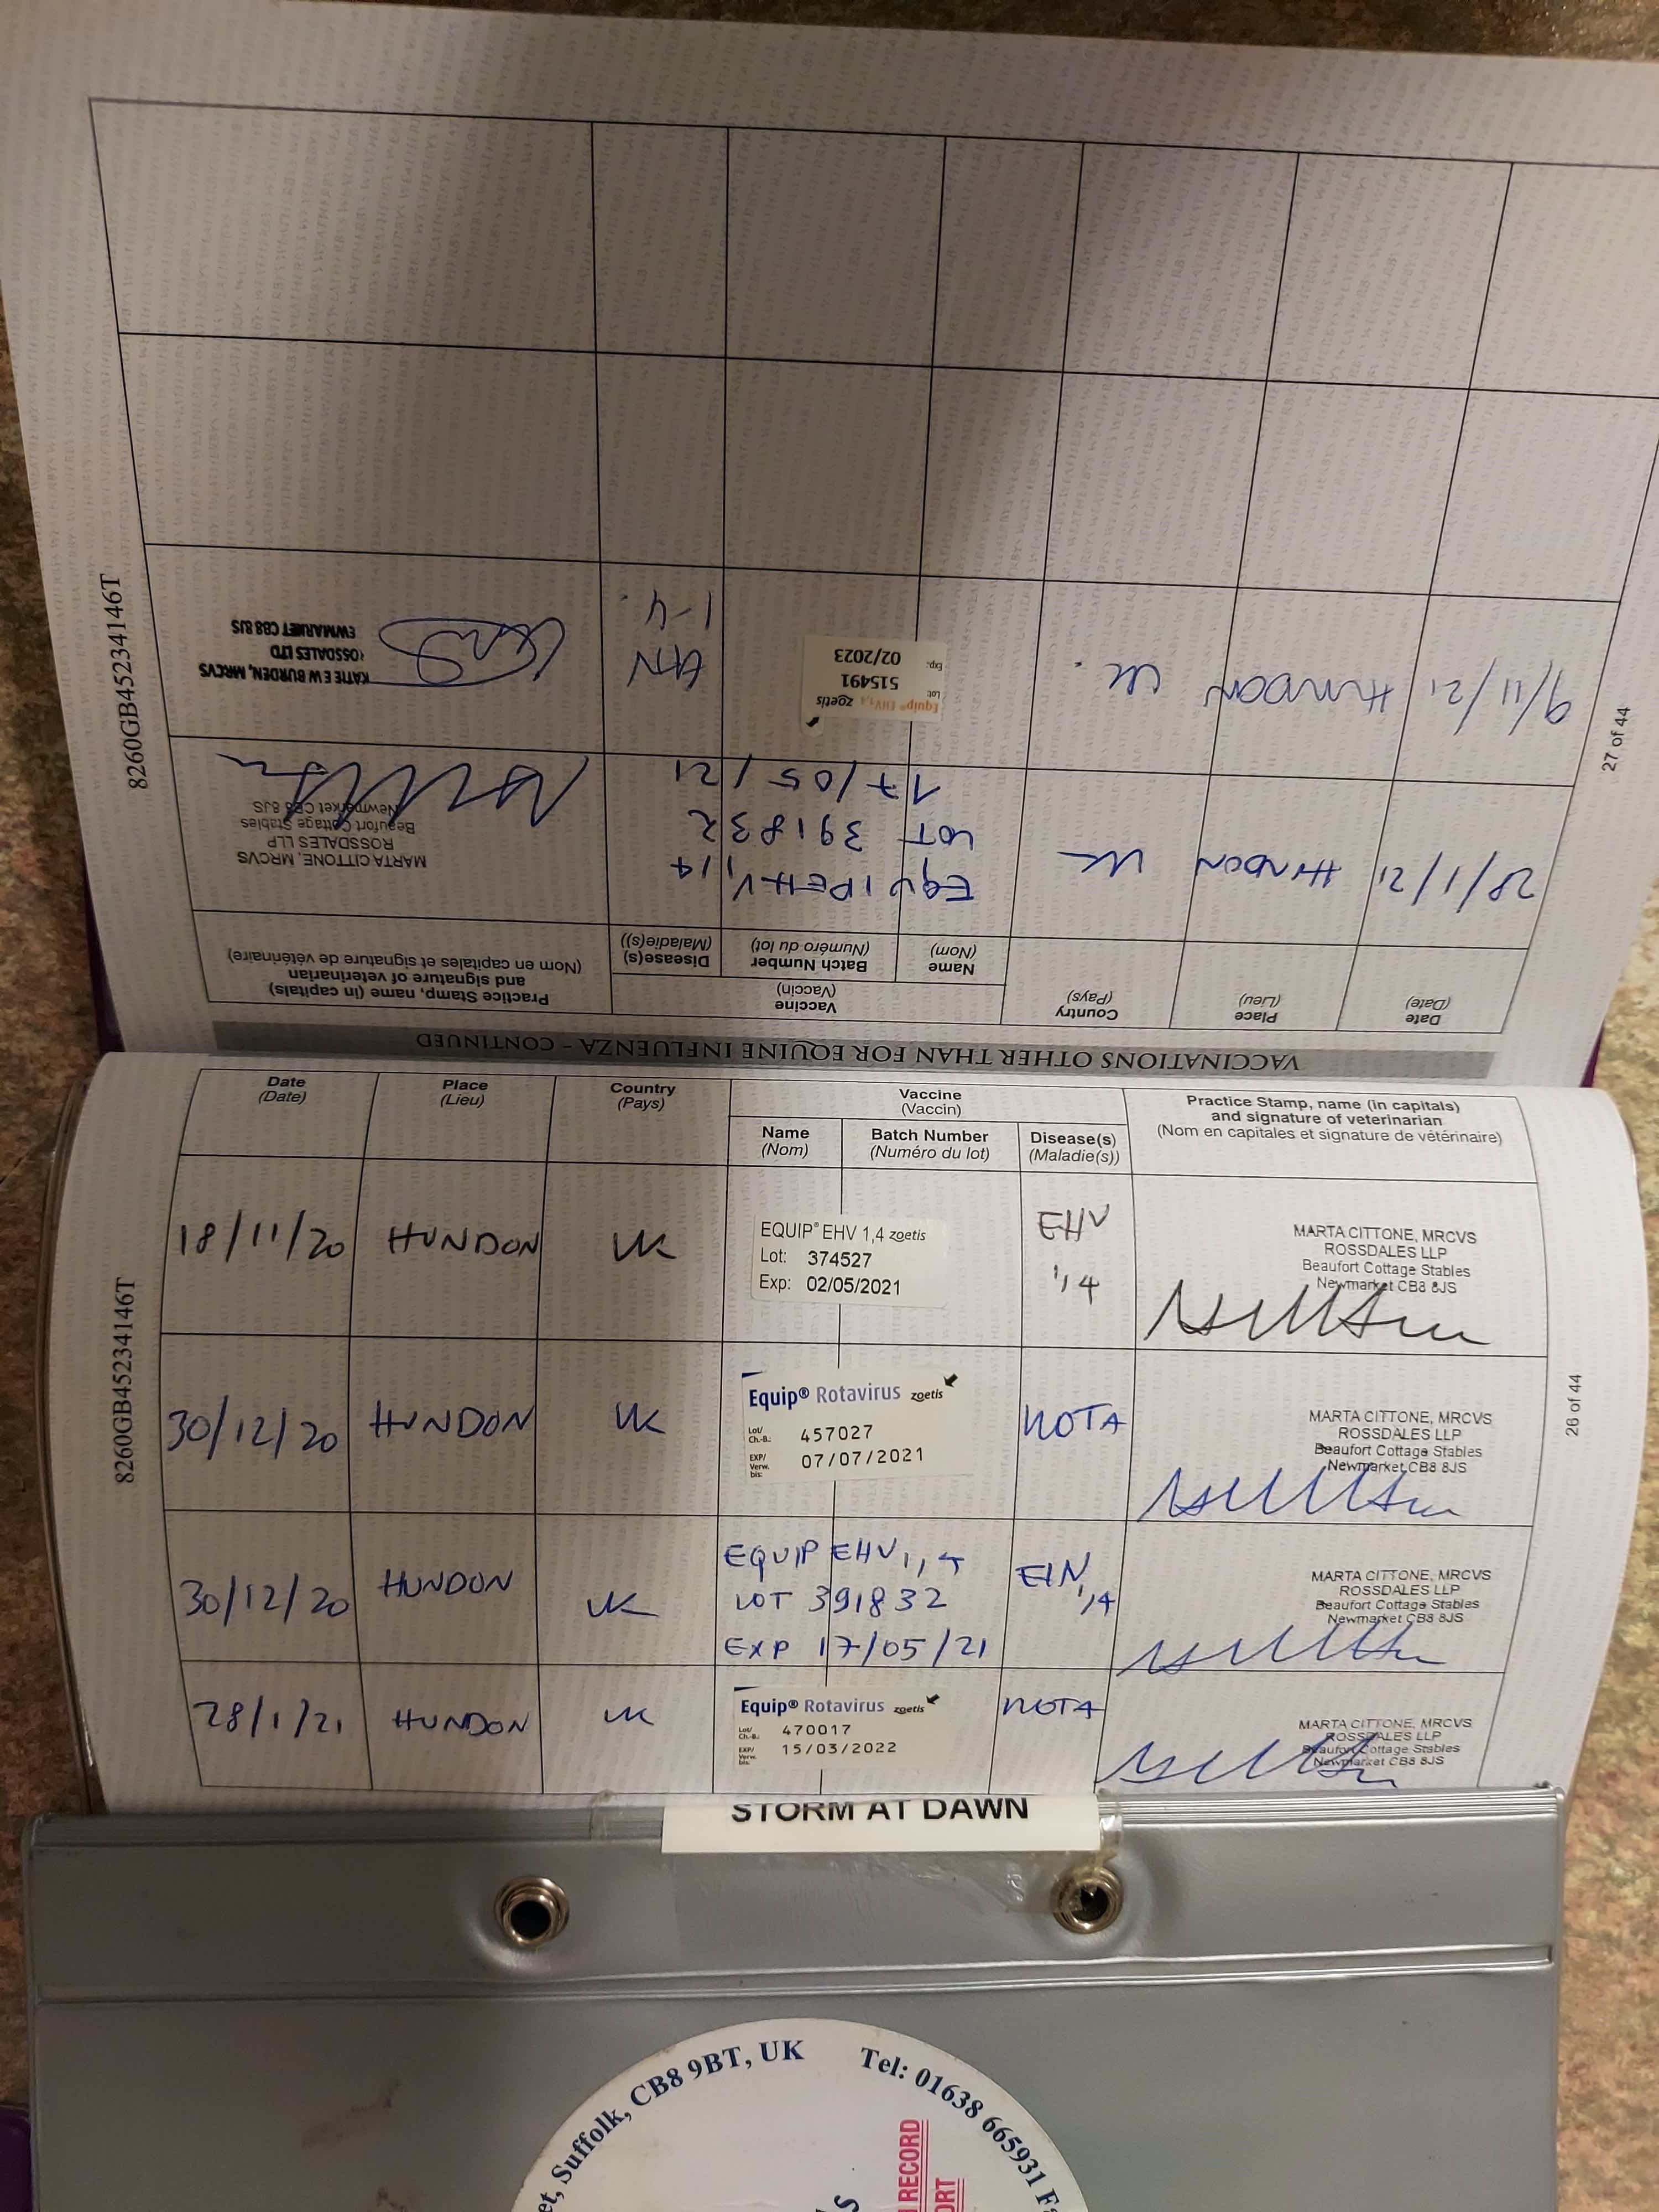 8260GB45234146T
26 of 44
Date
(Date)
Place
(Lieu)
Country
(Pays)
Vaccine
(Vaccin)
Name
(Nom)
Batch Number
(Numéro du lot)
Disease(s)
(Maladie(s))
Practice Stamp, name (in capitals)
and signature of veterinarian
(Nom en capitales et signature de vétérinaire)
18/11/20
HUNDON
UK
EQUIP® EHV 1,4 zoetis
Lot: 374527
Exp: 02/05/2021
EHV
1,4
MARTA CITTONE, MRCVS
ROSSDALES LLP
Beaufort Cottage Stables
Newmarket CB8 8JS
30/12/20
HUNDON
UK
Equip® Rotavirus zoetis
Lot/
Ch.-B.: 457027
EXP/
Verw.
bis: 07/07/2021
ROTA
MARTA CITTONE, MRCVS
ROSSDALES LLP
Beaufort Cottage Stables
Newmarket CB8 8JS
30/12/20
HUNDON
UK
EQUIP EHV 1,4
LOT 391832
EXP 17/05/21
EHV
1,4
MARTA CITTONE, MRCVS
ROSSDALES LLP
Beaufort Cottage Stables
Newmarket CB8 8JS
28/1/21
HUNDON
UK
Equip® Rotavirus zoetis
Lot/
Ch.-B.: 470017
EXP/
Verw.
bis: 15/03/2022
ROTA
MARTA CITTONE, MRCVS
ROSSDALES LLP
Beaufort Cottage Stables
Newmarket CB8 8JS
VACCINATIONS OTHER THAN FOR EQUINE INFLUENZA – CONTINUED
8260GB45234146T
27 of 44
Date
(Date)
Place
(Lieu)
Country
(Pays)
Vaccine
(Vaccin)
Name
(Nom)
Batch Number
(Numéro du lot)
Disease(s)
(Maladie(s))
Practice Stamp, name (in capitals)
and signature of veterinarian
(Nom en capitales et signature de vétérinaire)
28/1/21
HUNDON
UK
EQUIPEHV 1,4
LOT 391832
17/05/21
MARTA CITTONE, MRCVS
ROSSDALES LLP
Beaufort Cottage Stables
Newmarket CB8 8JS
9/11/21
HUNDON
UK.
Equip® EHV 1,4 zoetis
Lot: 515491
Exp: 02/2023
1-4.
KATIE E W BURDEN, MRCVS
OSSDALES LTD
EWMARKET CB8 8JS
STORM AT DAWN
et, Suffolk, CB8 9BT, UK Tel: 01638 665931
RECORD
ORT